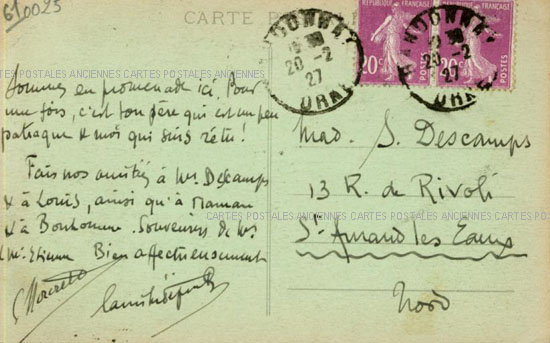 610025
CARTE
RÉPUBLIQUE FRANÇAISE
20c
20-2
27
20c
20-2
27
Sommes en promenade ici. Pour
une fois, c'est ton père qui est un peu
patraque & moi qui suis rétu !
Fais nos amitiés à Mr. Descamps
& à Louis, ainsi qu'à Maman
& à Bonhomme. Souvenirs de Mr
& Me. Etienne Bien affectueusement
Mad. S. Descamps
13 R. de Rivoli
St. Amand les Eaux
Nord
CARTES POSTALES ANCIENNES CARTES POSTALES ANCIENNES CARTES POSTALES ANCIENNES
CARTES POSTALES ANCIENNES CARTES POSTALES ANCIENNES